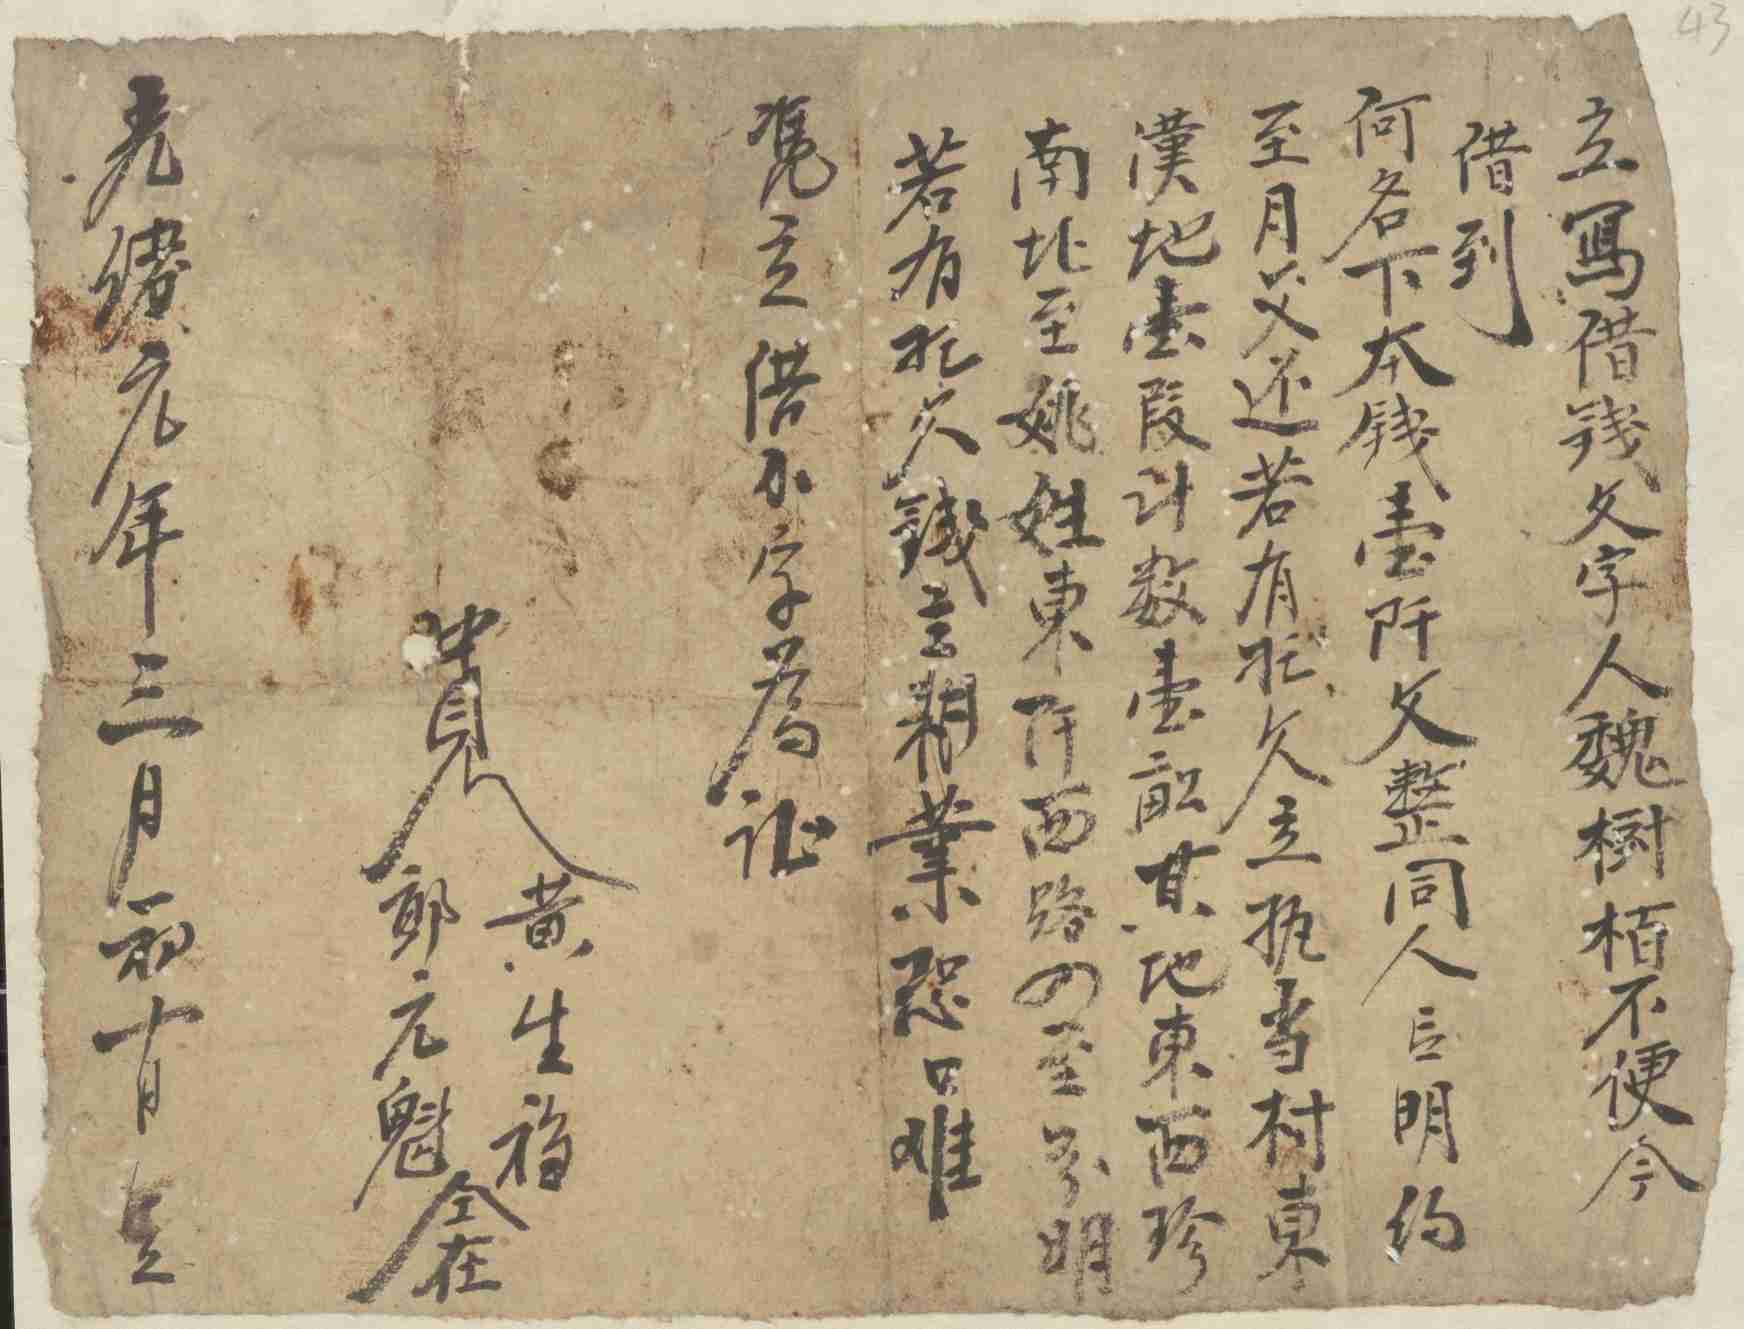 43
立寫借錢文字人魏樹栢不便今
借到
何名下本錢壹阡文整同人言明約
至月父还若有欠立执当村東
漢地壹叚计数壹畝其地東西珍
南北至姚姓東阡西路四至分明
若有欠錢言業恐口难
凴立借小字為证
中見人
黃生福
郭元魁
仝在
光緒元年三月初十日立